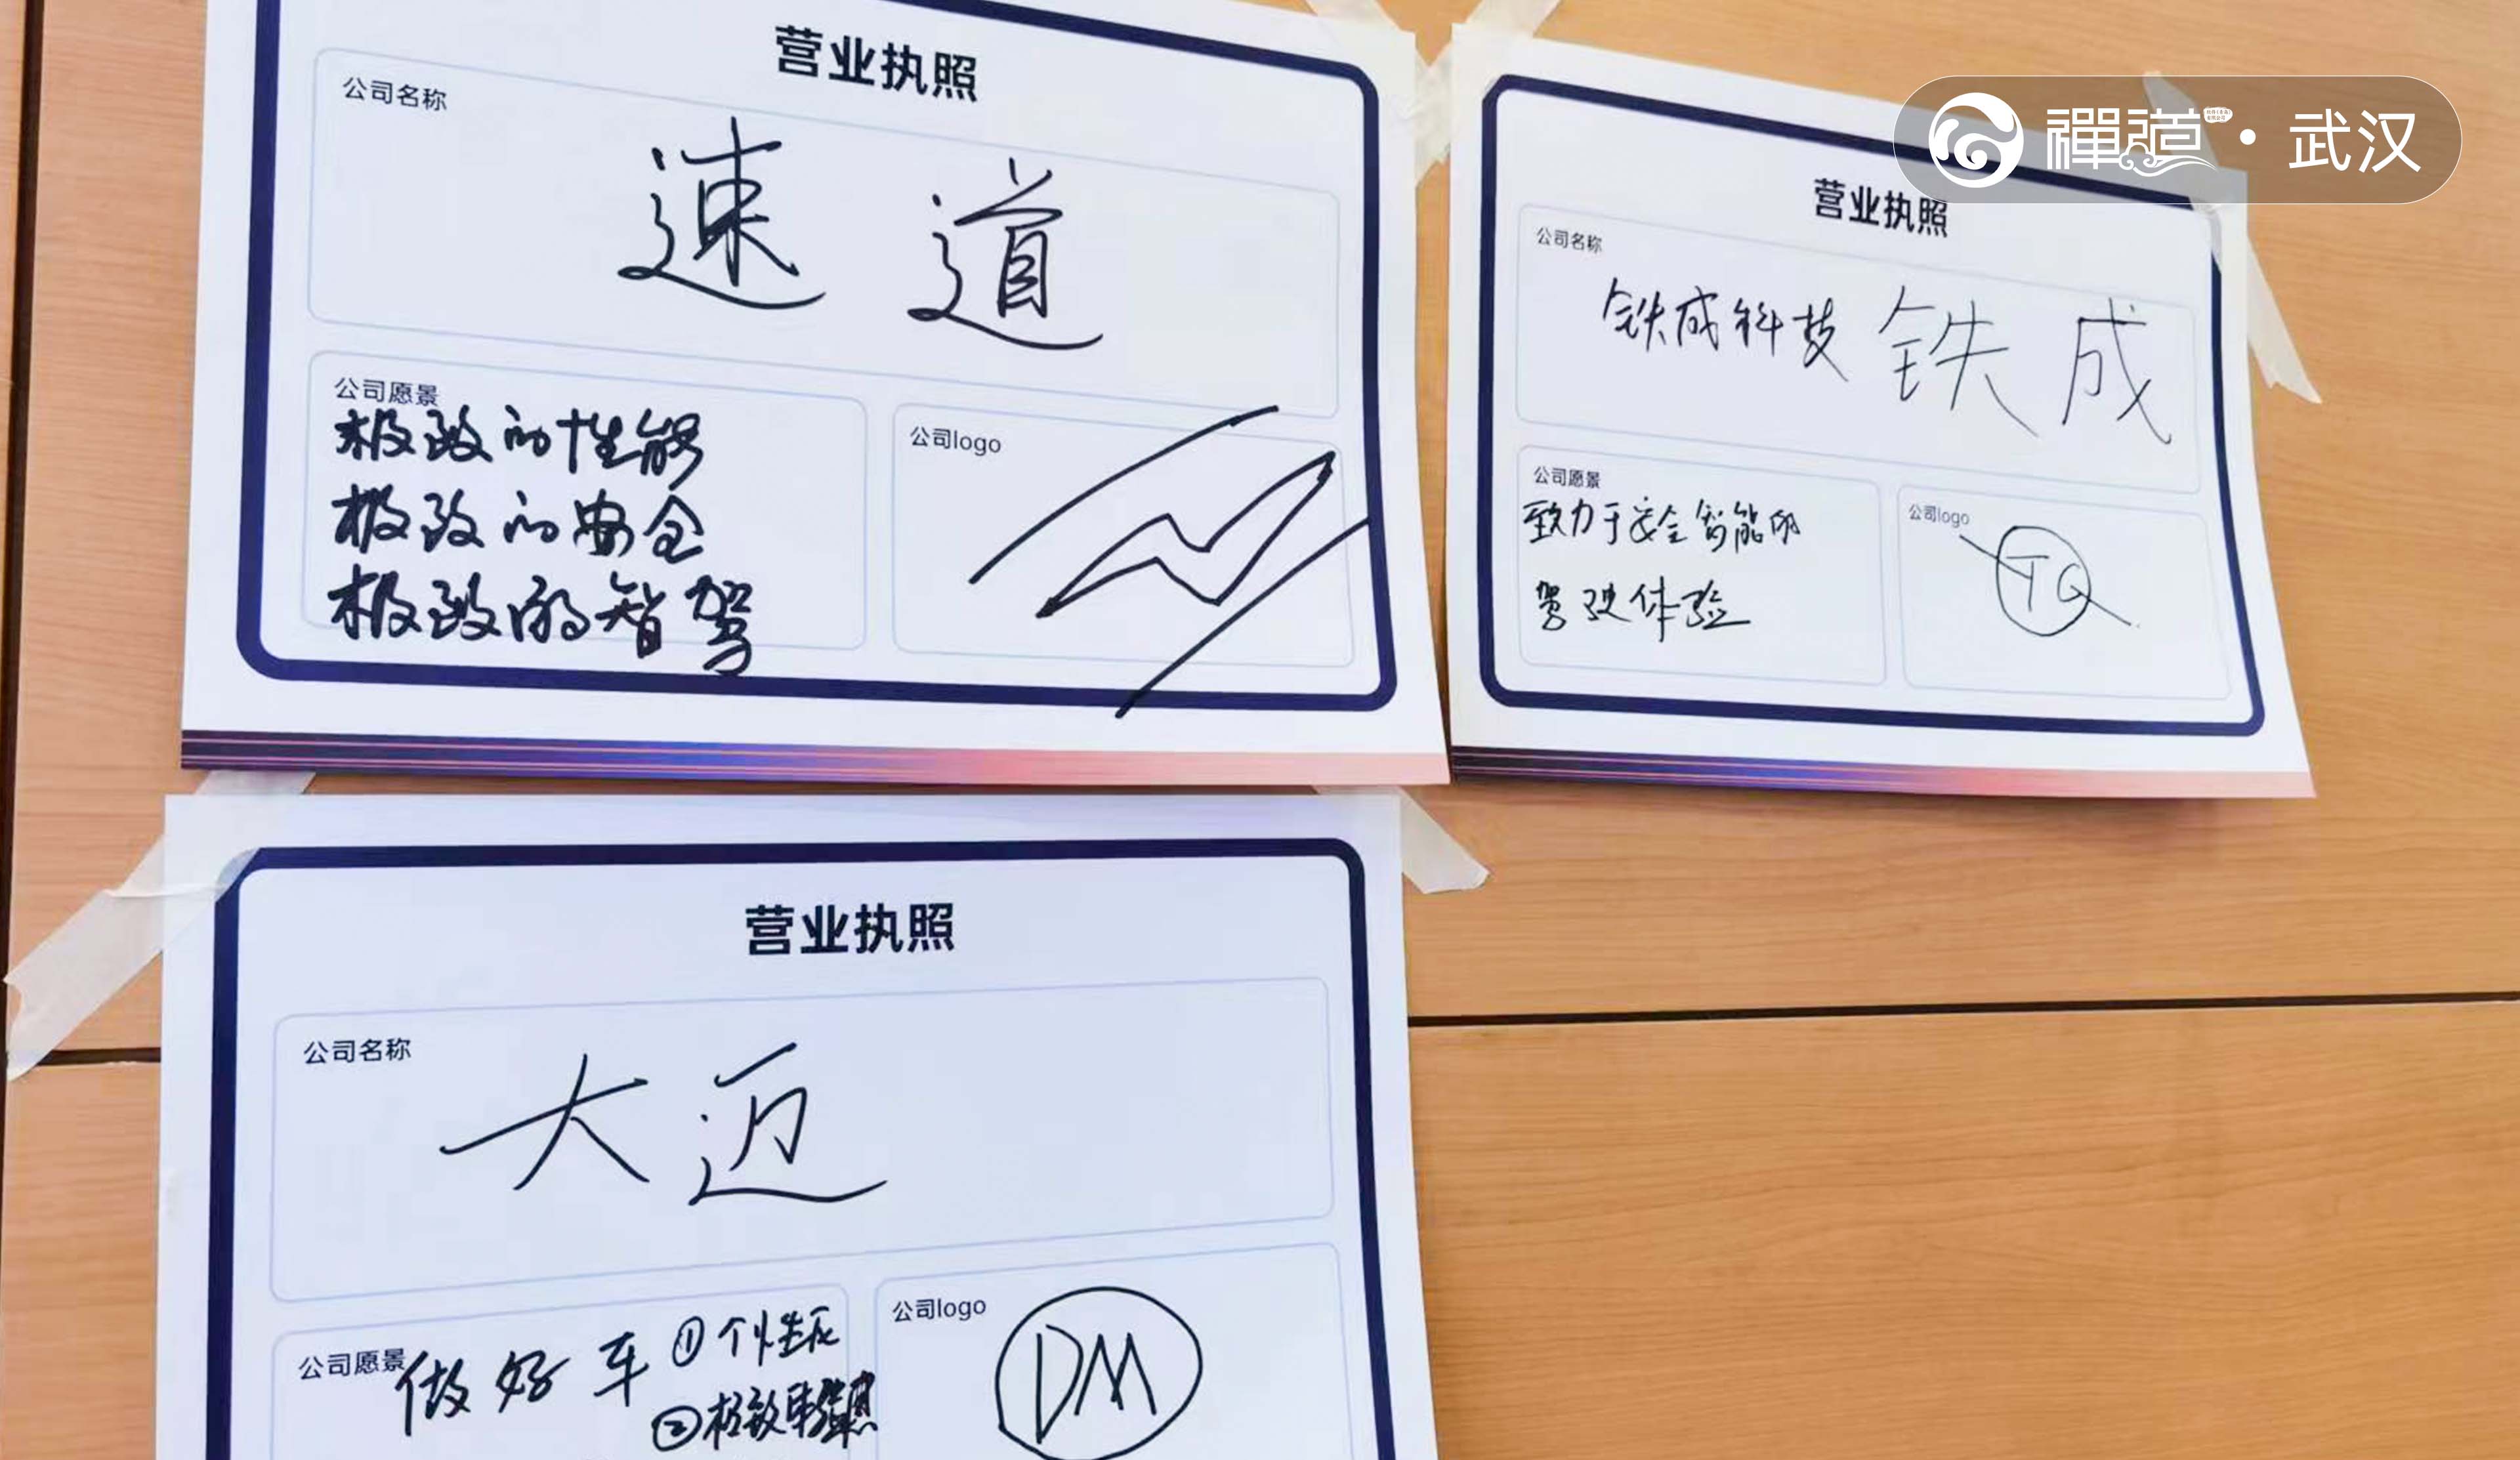 营业执照
公司名称
速道
公司愿景
极致的性能
极致的安全
极致的智驾
公司logo
禅道·武汉
营业执照
公司名称
铁成科技 铁成
公司愿景
致力于安全智能的
驾驶体验
公司logo
TC
营业执照
公司名称
大迈
公司愿景
做好车 ①个性化
②极致
公司logo
DM